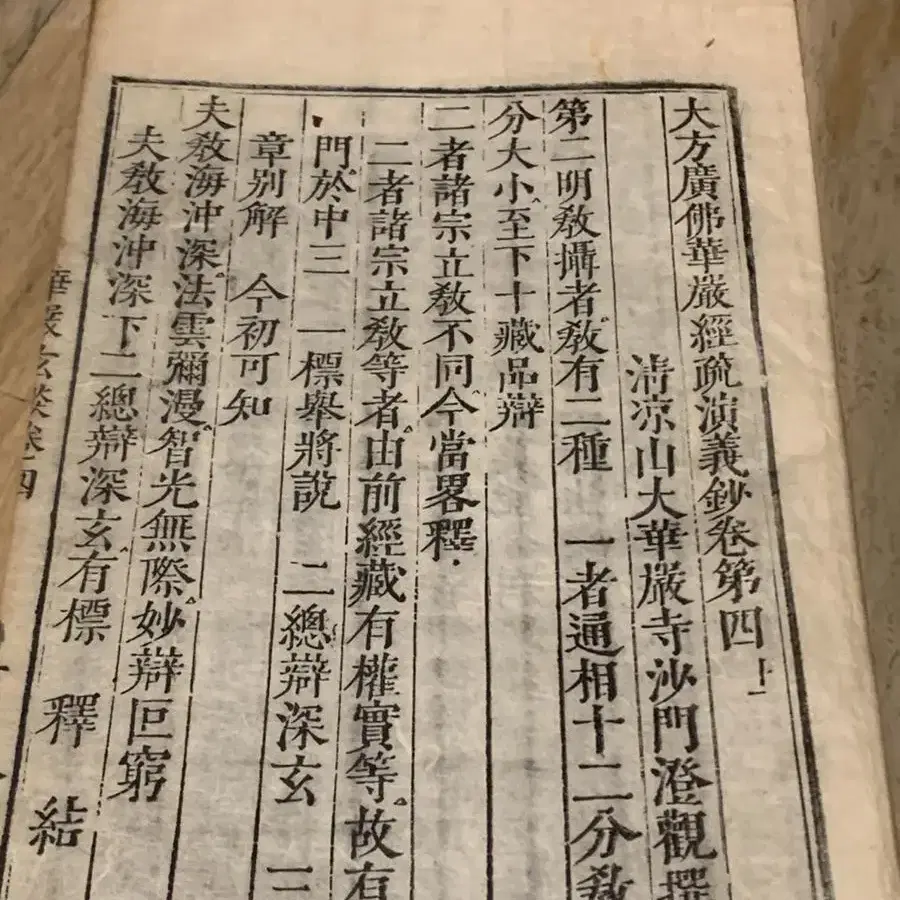 大方廣佛華嚴經疏演義鈔卷第四上
清凉山大華嚴寺沙門澄觀撰
第二明敎攝者敎有二種　一者通相十二分敎
分大小至下十藏品辯
二者諸宗立敎不同今當畧釋
二者諸宗立敎等者由前經藏有權實等故有
門於中三　一標舉將說　二總辯深玄　三
章別解　今初可知
夫敎海沖深法雲彌漫智光無際妙辯叵窮
夫敎海沖深下二總辯深玄有標　釋　結
華嚴玄談卷四